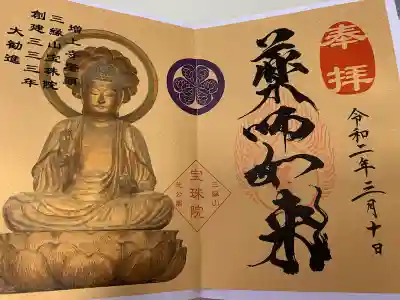 奉拝
薬師如来
令和二年三月十日
三縁山
宝珠院
芝公園
増上寺塔頭
三縁山宝珠院
創建三三三年
大勧進